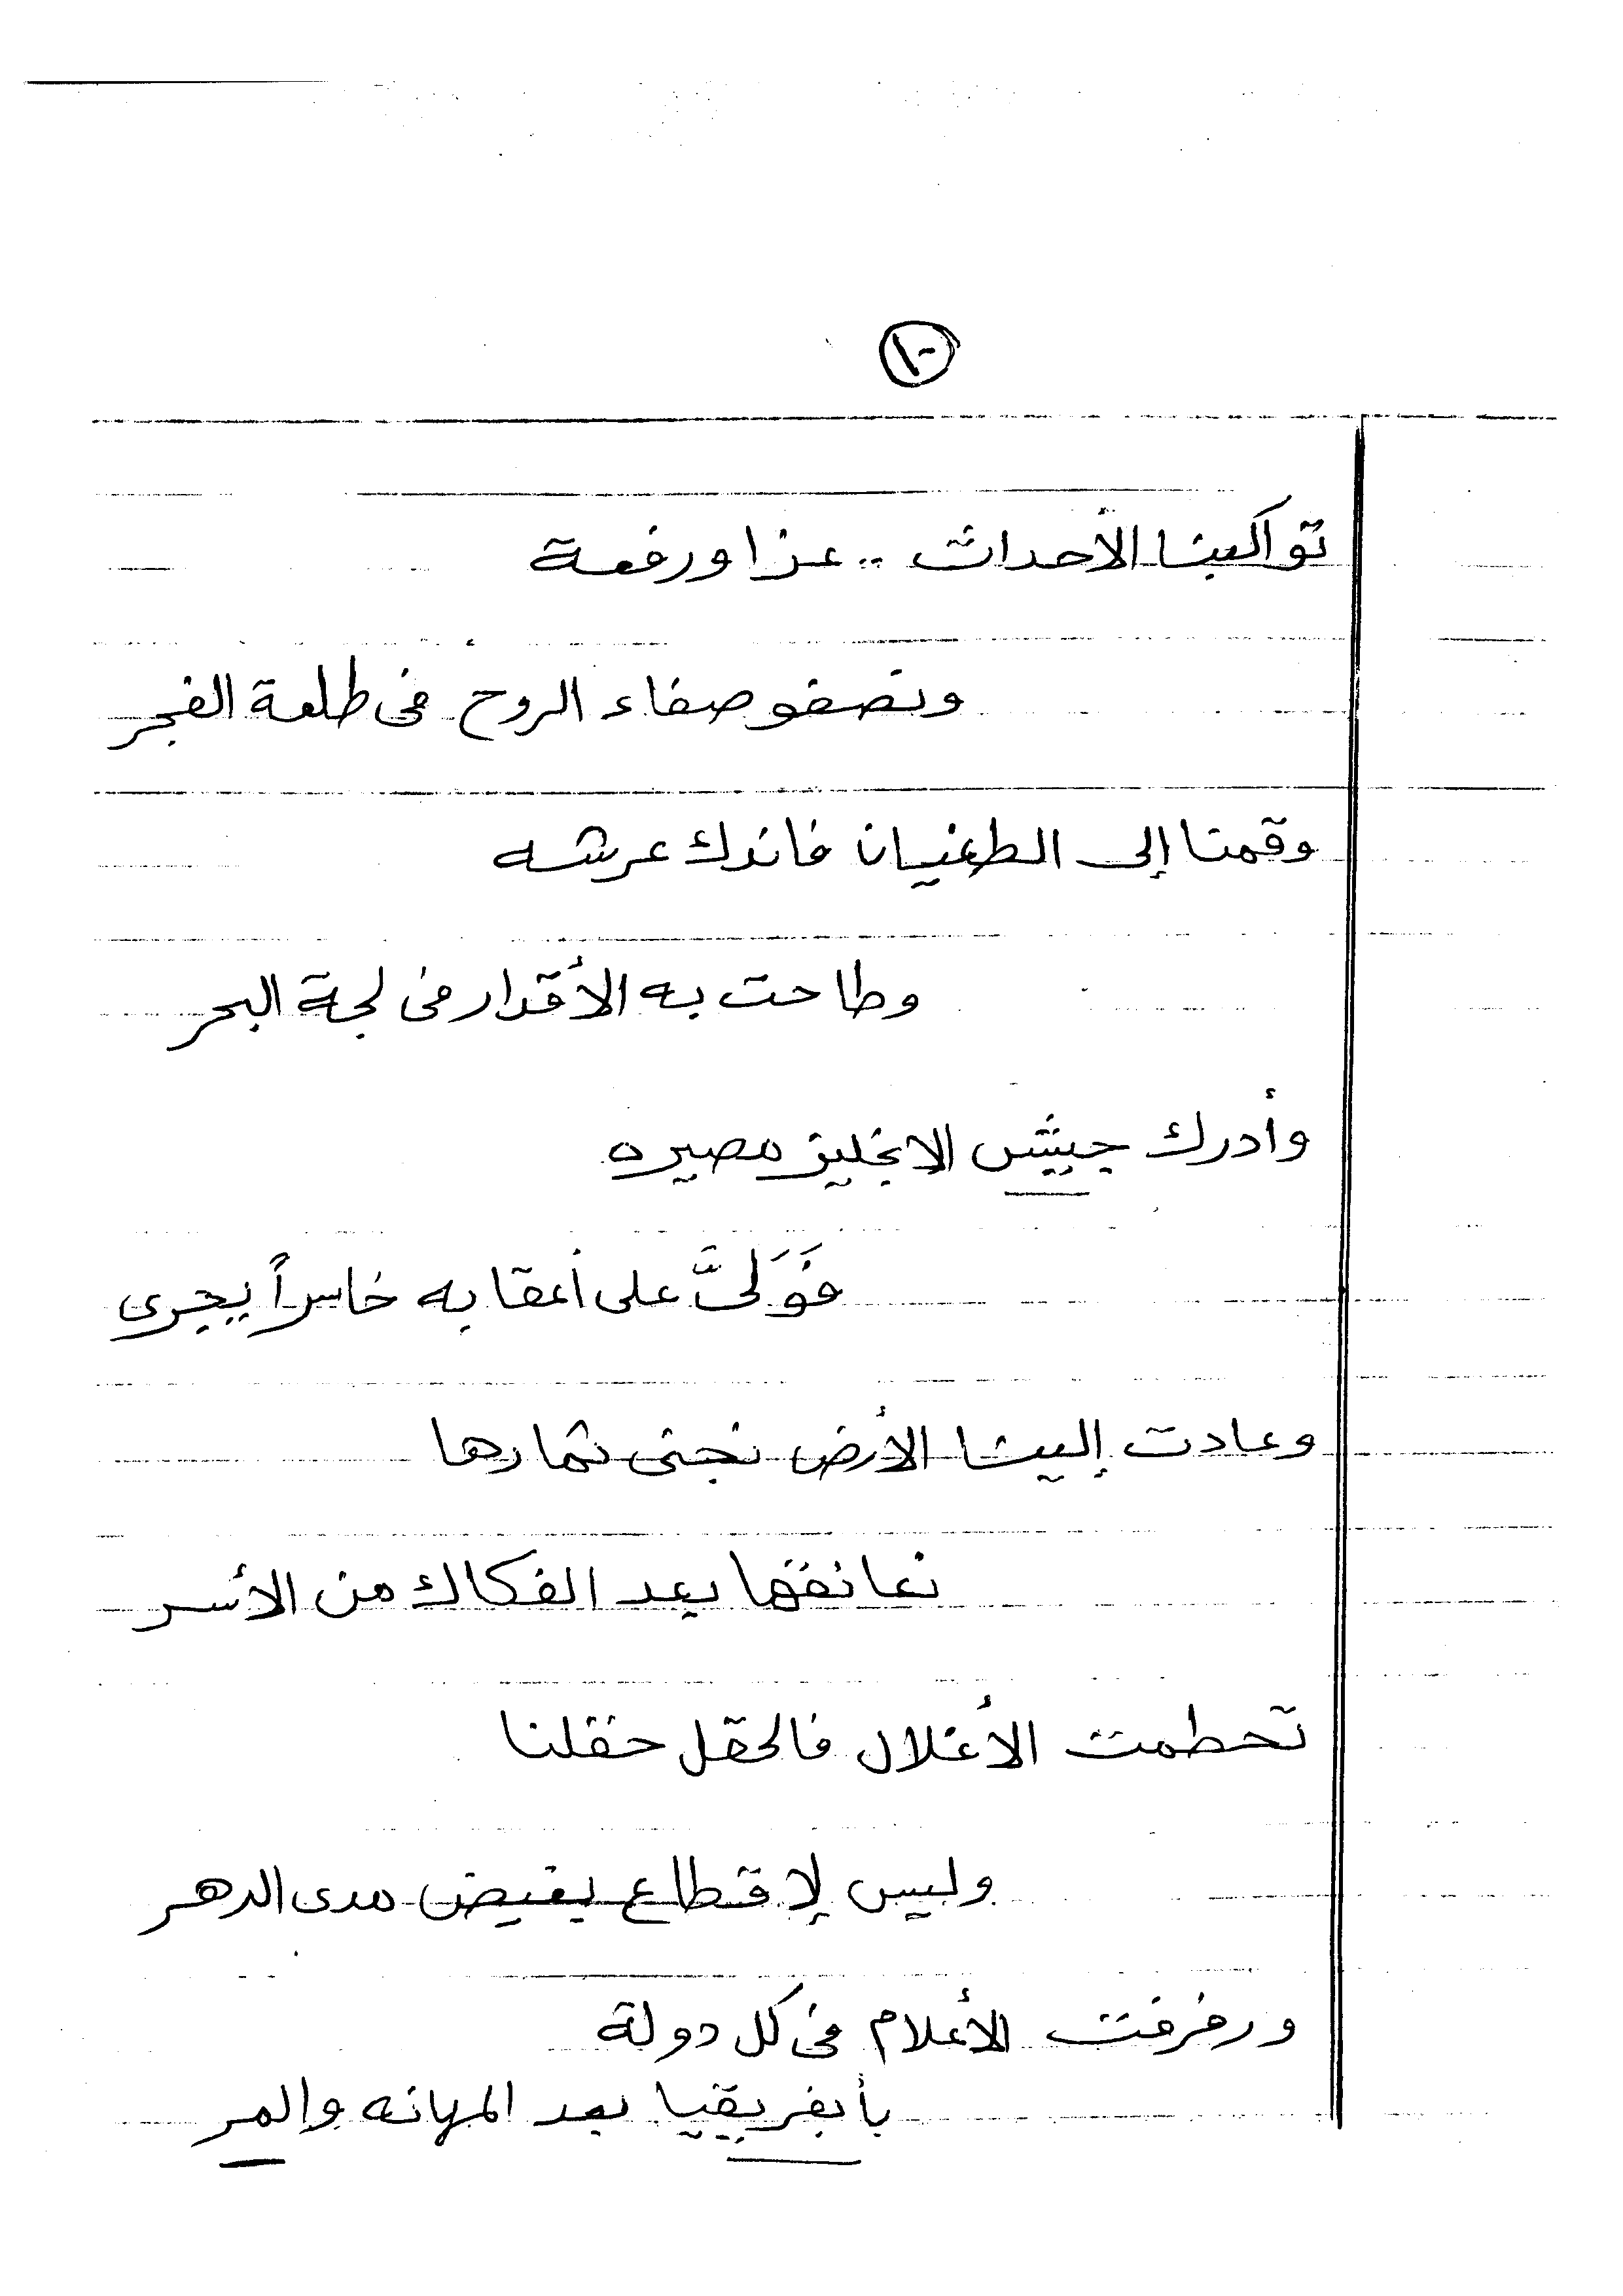 ١٠
تواكبنا الأحداث .. عزا ورفعة
ونصفو صفاء الروح فى طلعة الفجر
وقمنا إلى الطغيان فاندك عرشه
وطاحت به الأقدار فى لجة البحر
وأدرك جيش الانجليز مصيره
فَوَلىَّ على أعقابه خاسراً يجرى
وعادت إلينا الأرض نجنى ثمارها
نعانقها بعد الفكاك من الأسر
تحطمت الأغلال فالحقل حقلنا
وليس لإقطاع بغيض مدى الدهر
ورفرفت الأعلام فى كل دولة
بأفريقيا بعد المهانه والمر